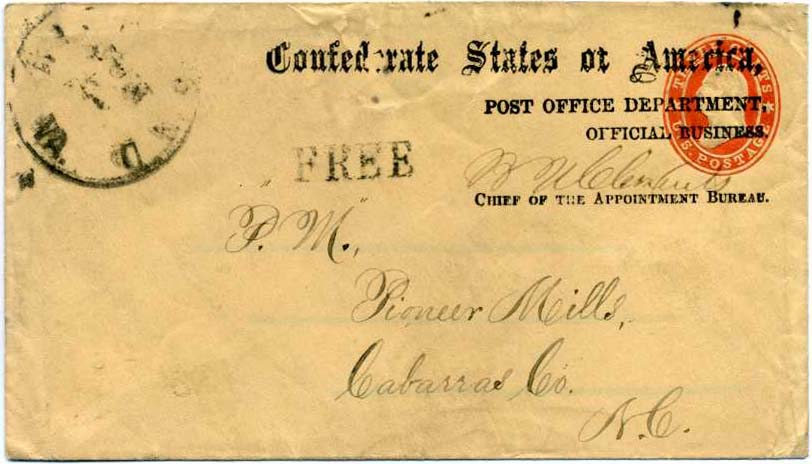 Confederate States of America,
POST OFFICE DEPARTMENT,
OFFICIAL BUSINESS.
B N Clements
CHIEF OF THE APPOINTMENT BUREAU.
THREE CENTS
U.S. POSTAGE
VA.
FREE
"P. M.",
Pioneer Mills,
Cabarras Co.
N.C.